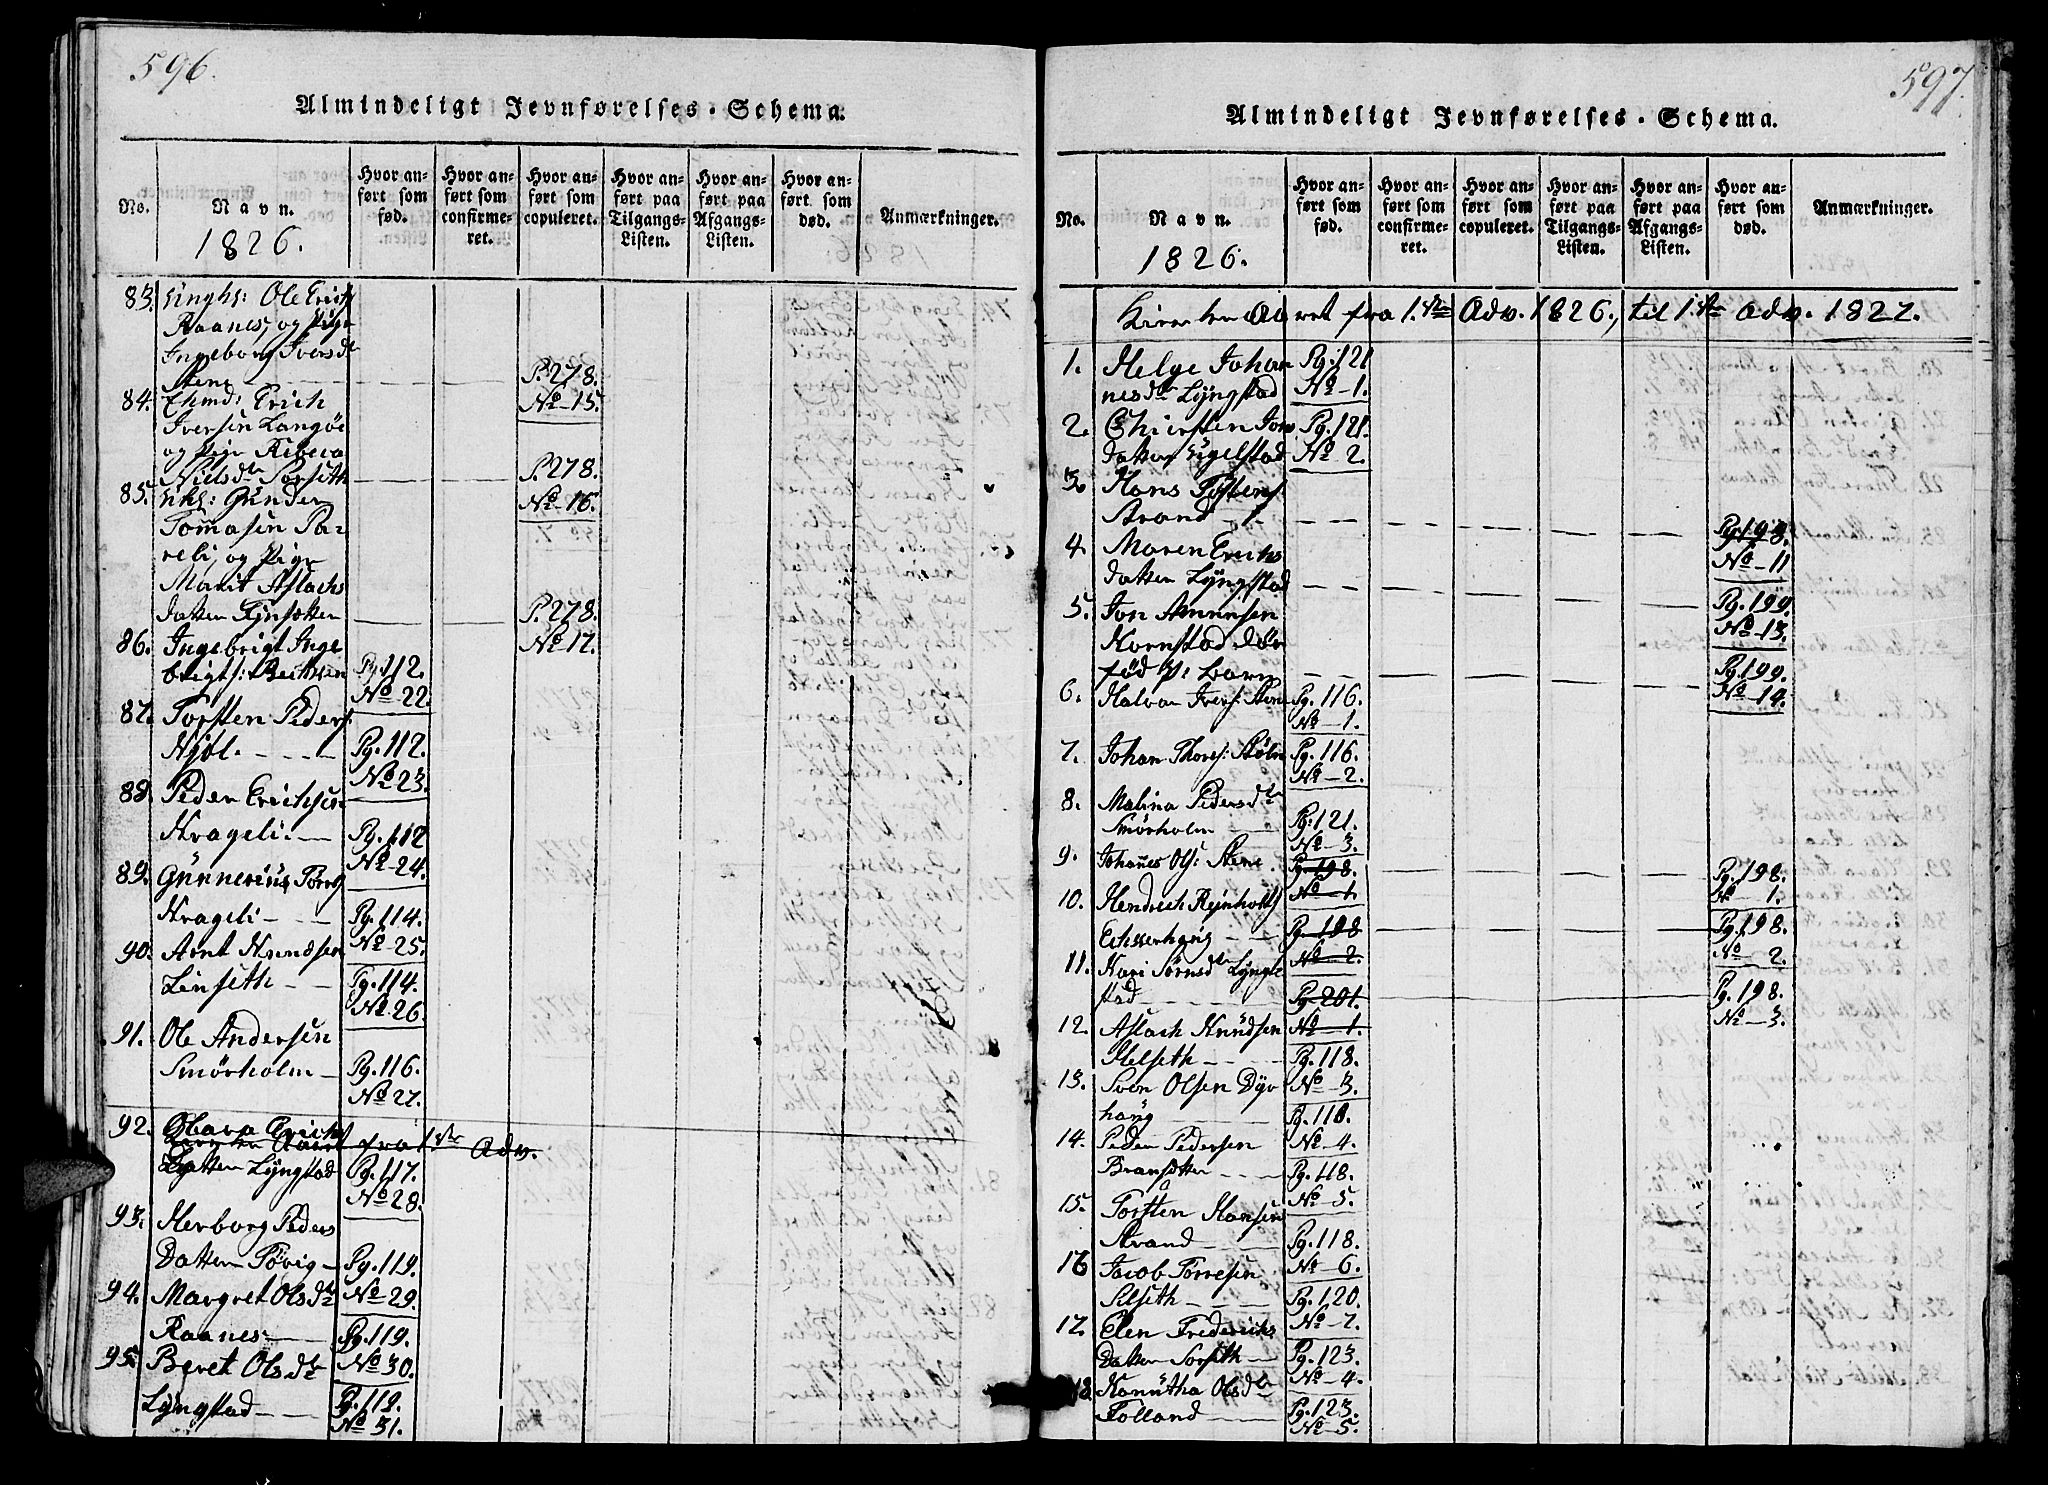 596.
Almindeligt Jevnførelses-Schema.
No.
Navn.
1826.
Hvor anført som fød.
Hvor anført som confirmeret.
Hvor anført som copuleret.
Hvor anført paa Tilgangs-Listen.
Hvor anført paa Afgangs-Listen.
Hvor anført som død.
Anmærkninger.
83. Unghs: Ole Erichs
Raanes, og Pige
Ingeborg Iversdr
Stene P. 278.
84. Ehmd: Erich No 15.
Iversen Langöe
og Pige Rebeca
Nielsdr Sorseth P. 278.
85. Uhs: Gunder No 16.
Tommasen Far-
reli, og Pige
Marit Aslachs
datter P. 278.
86. Ingebrigt Inge No 17.
brigts: Pg. 112.
No 22.
87. Torsten Peders:
Njøl. Pg. 112.
No 23.
88. Peder Erichsen
Krageli. Pg. 112
No 24.
89. Gunnerius Torrs
Krageli Pg. 114.
No 25.
90. Arnt Knudsen
Linseth Pg. 114.
No 26.
91. Ole Andersen
Smörholm Pg. 116.
No 27.
92. Olava Erichs
Kirche Aaret fra 1ste Adv.
Datter Lÿngstad Pg. 117.
No 28.
93. Herborg Peders
Datter Pg. 119.
94. Margret Olsdr No 29.
Raanes Pg. 119.
95. Beret Olsdr No 30.
Lÿngstad Pg. 119.
No 31.
597.
Almindeligt Jevnførelses-Schema.
No.
Navn.
1826.
Hvor anført som fød.
Hvor anført som confirmeret.
Hvor anført som copuleret.
Hvor anført paa Tilgangs-Listen.
Hvor anført paa Afgangs-Listen.
Hvor anført som død.
Anmærkninger.
Kirche Aaret fra 1.ste Adv. 1826, til 1.ste Adv. 1827.
1. Helge Johan Pg. 121
nesdr Lÿngstad No 1.
2. Chiersten Jons Pg. 121.
datter Eigelstad No 2.
3. Hans Tostens
Strand Pg. 198.
4. Maren Erichs No 11
datter Lÿngstad Pg. 199.
5. Jon Amunsen No 13.
Kornstad död-
född P: Barn Pg. 199.
6. Halvor Ivers: Stene Pg. 116. No 14.
No 1.
7. Johan Thores: Stölen Pg. 116.
No 2.
8. Malina Pedersdr
Smörholm Pg. 121.
No 3.
9. Johannes Ols: Stene Pg. 198. Pg. 198.
No 1. No 1.
10. Hendrich Reinholts
Pg. 198 Pg. 198.
No 2. No 2.
11. Kari Törresdr Lÿngstad Pg. 201. Pg. 198.
No 1. No 3.
12. Aslach Knudsen
Helseth Pg. 118.
13. Sven Olsen Dÿr No 3.
haug Pg. 118.
14. Peder Pedersen No 4.
Pg. 118.
No 5.
15. Torsten Hansen
Strand Pg. 118.
16 Jacob Torresen No 6.
Silseth Pg. 120.
17. Elen Friderichs No 7.
Datter Sorseth Pg. 123.
No 4.
18 Kanutha Olsdr
Folland Pg. 123.
No 5.